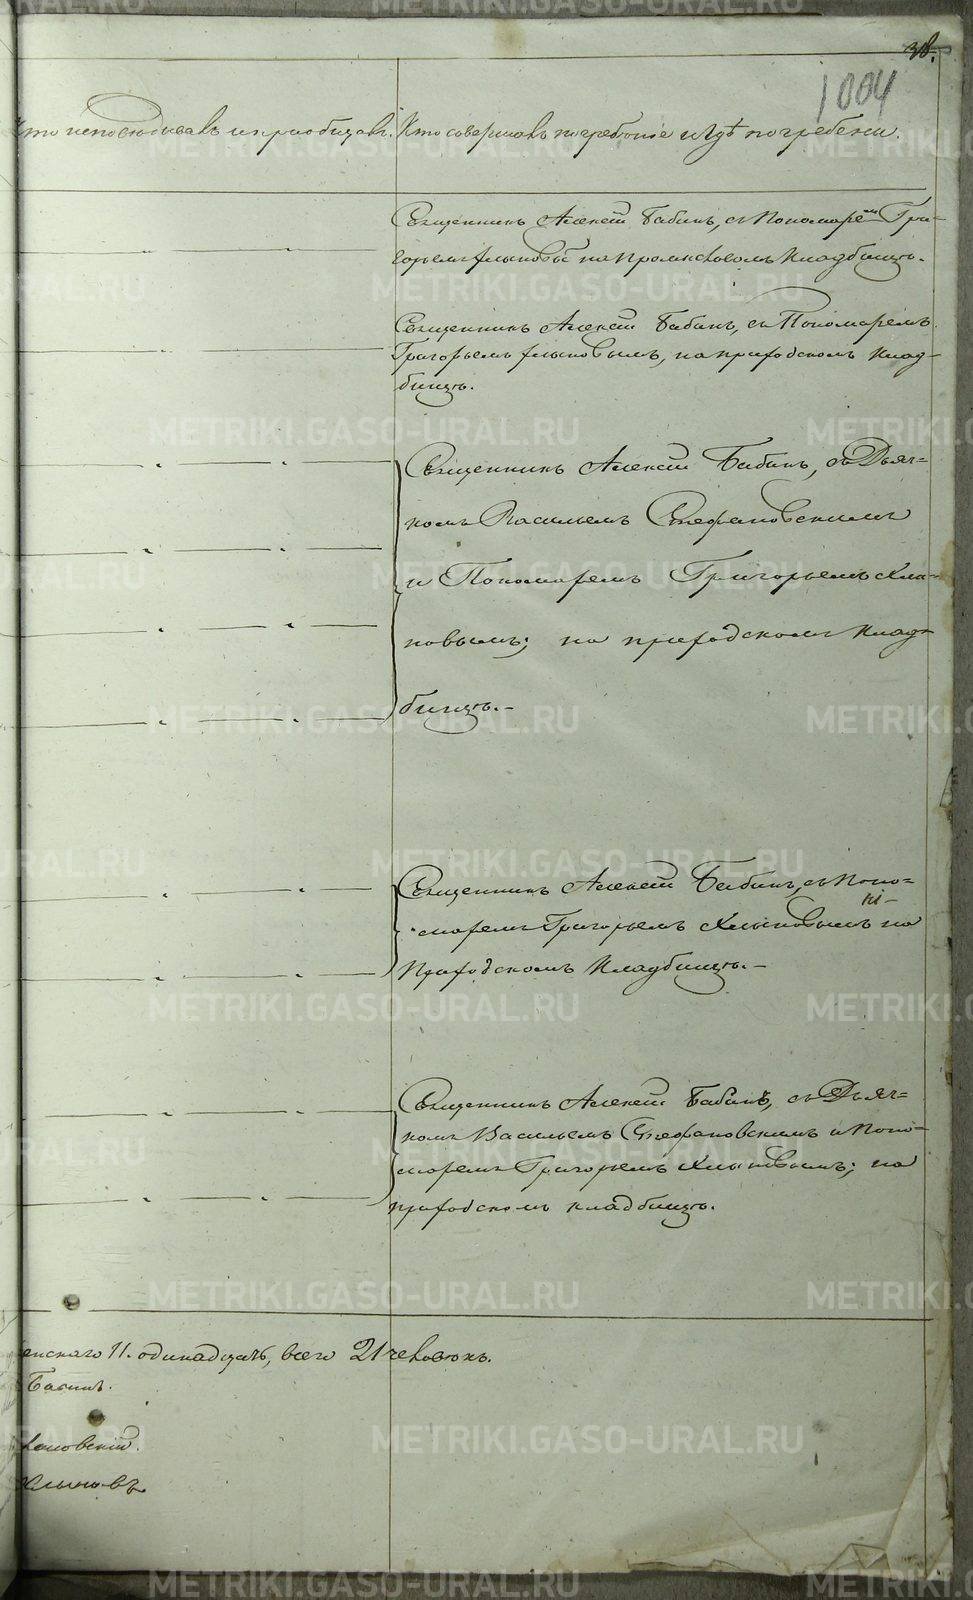 38.
1004
кто исповѣдывалъ и приобщалъ. Кто совершалъ погребенiе и гдѣ погребены.
Священникъ Алексiй Бабинъ, съ Пономаремъ Гри-
горьемъ Хлыновы на Приходскомъ Кладбищѣ.
Священникъ Алексiй Бабинъ, съ Пономаремъ
Григорьемъ Хлыновымъ, на приходскомъ Клад-
бищѣ.
Священникъ Алексiй Бабинъ, съ Дьяч=
комъ Васильемъ Стефановскимъ
и Пономаремъ Григорьемъ Хлы-
новымъ; на приходскомъ Клад-
бищѣ.-
Священникъ Алексiй Бабинъ, съ Поно=
маремъ Григорьемъ Хлыновымъ на
Приходскомъ Кладбищѣ.-
Священникъ Алексiй Бабинъ, съ Дьяч=
комъ Васильемъ Стефановскимъ и Поно-
маремъ Григорьемъ Хлыновымъ; на
приходскомъ кладбищѣ.
енскаго 11. одинадцать, всего 21 человѣкъ.
Бабинъ.
фановскiй.
Хлыновъ.
METRIKI.GASO-URAL.RU